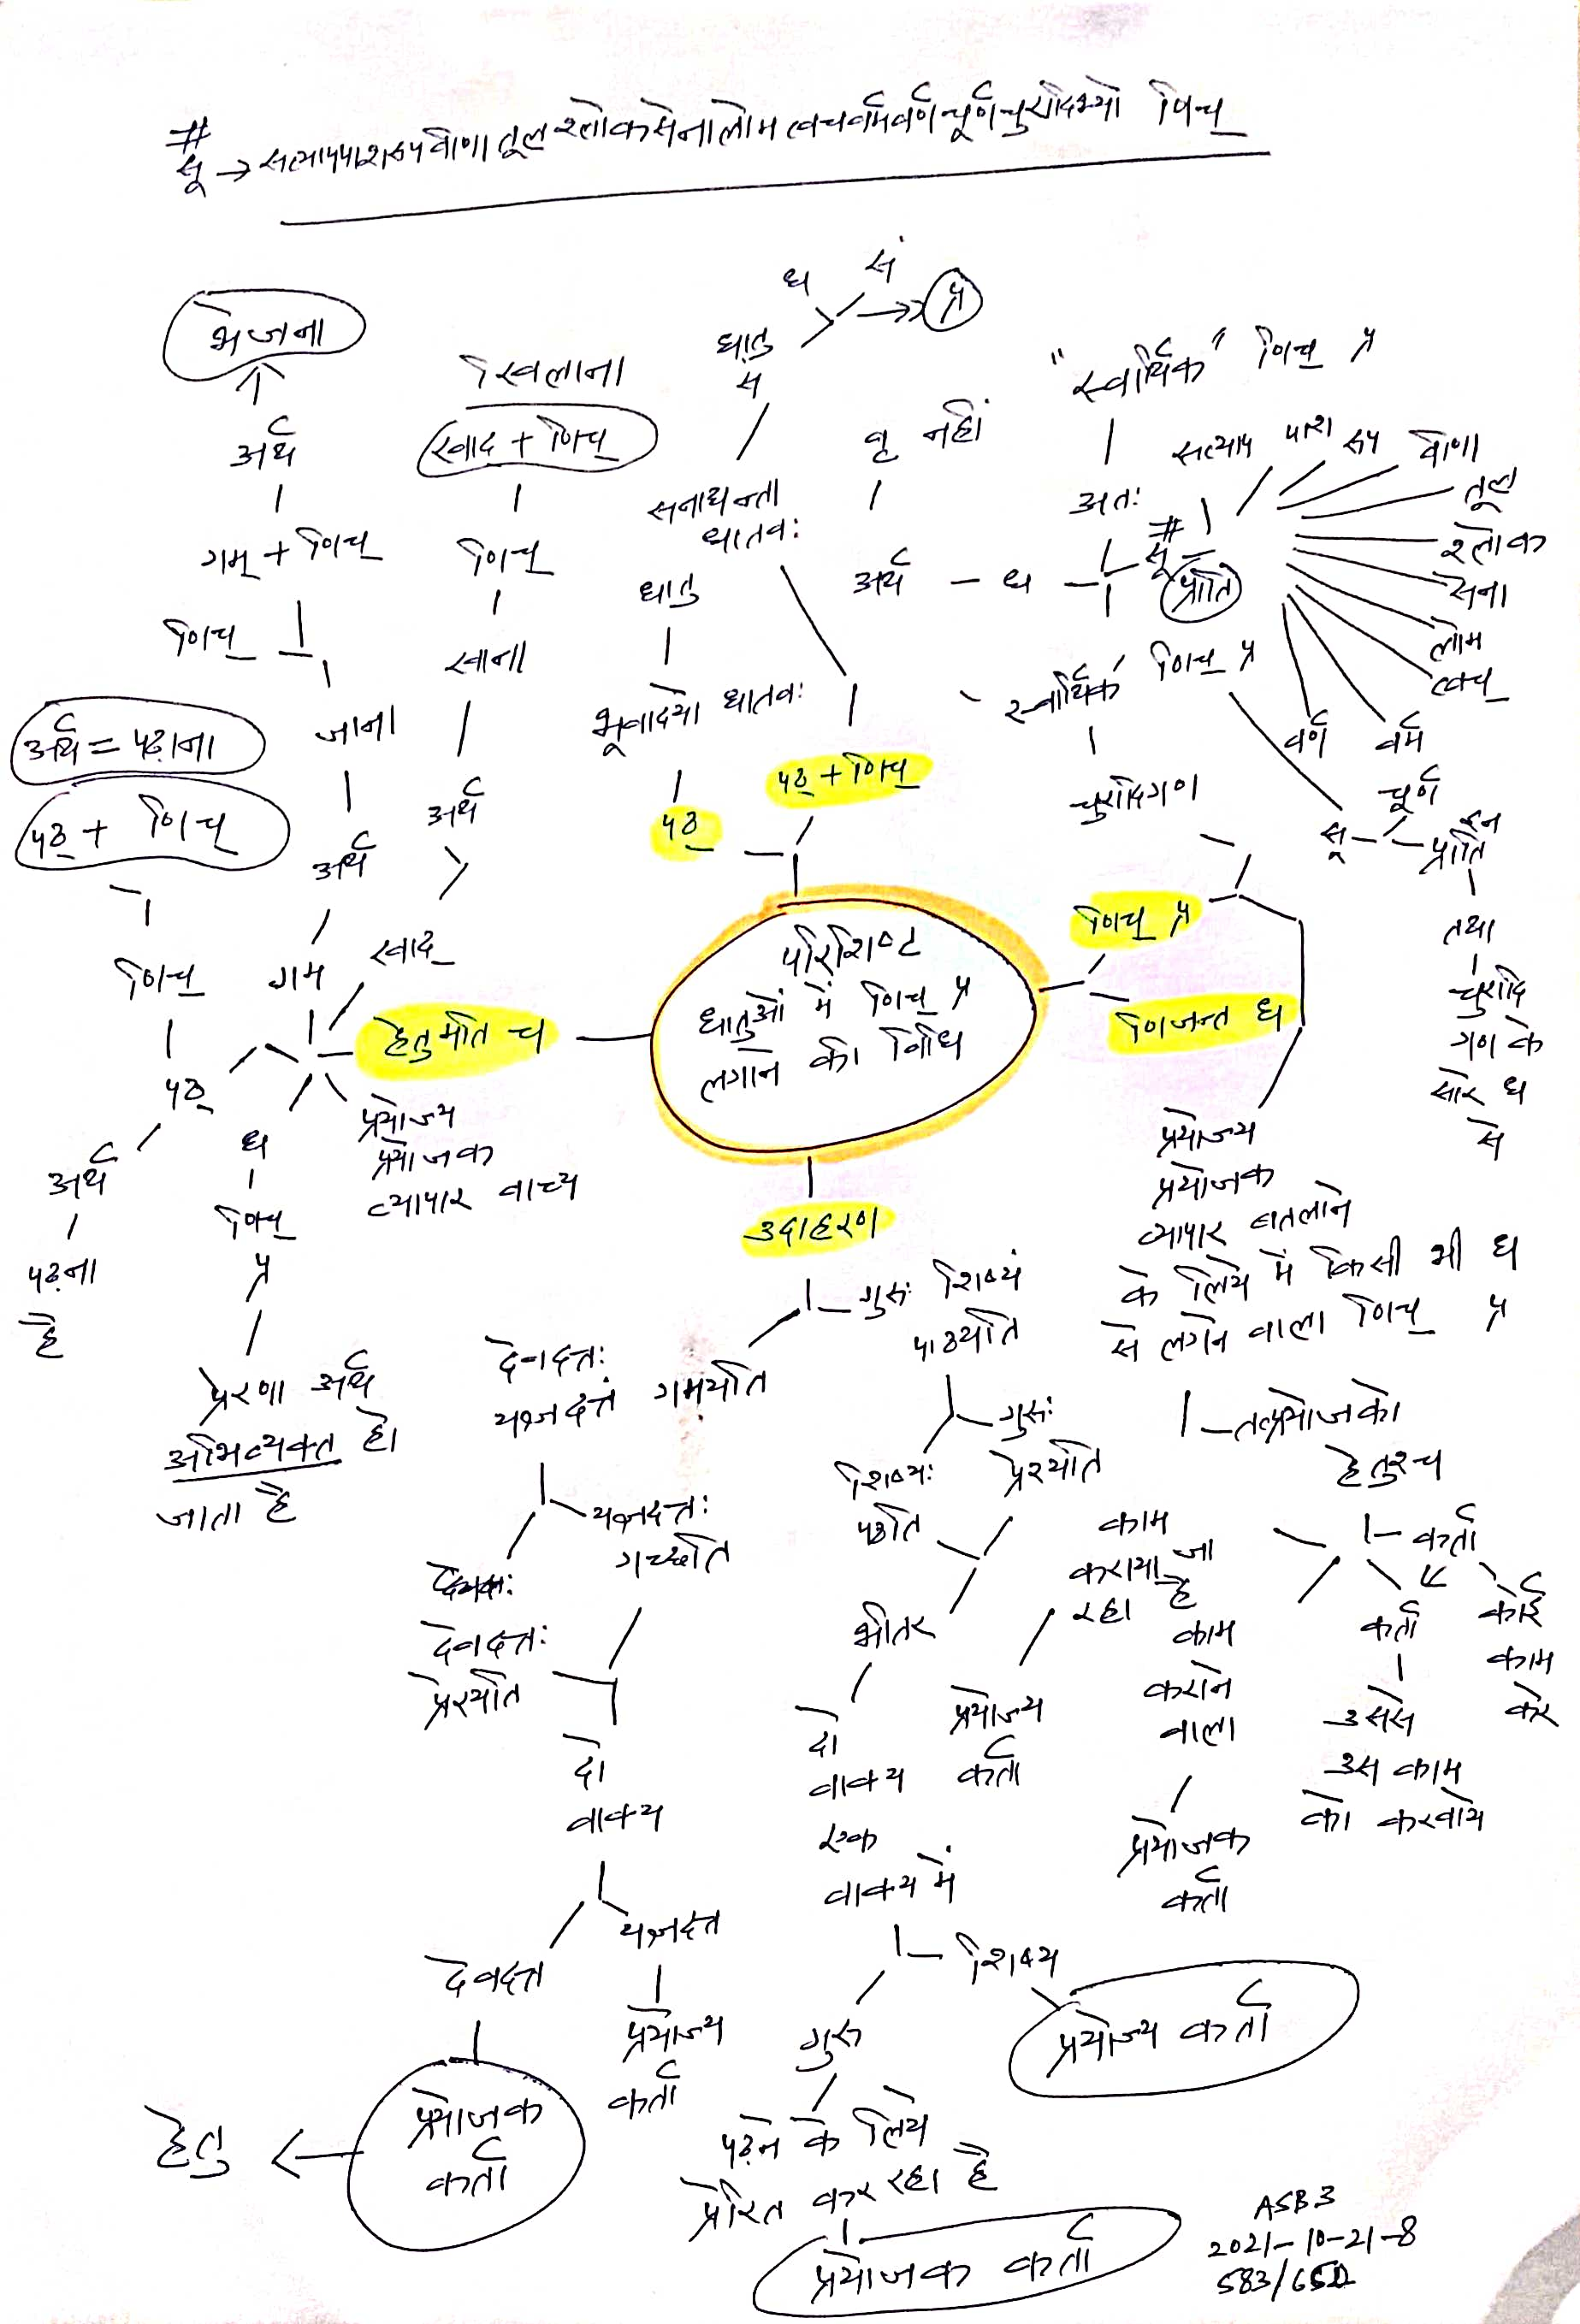 #
सू → सत्यापपाशरूपवीणातूलश्लोकसेनालोमत्वचवर्मवर्णचूर्णचुरादिभ्यो णिच्
भेजना
अर्थ
गम् + णिच्
णिच्
जाना
अर्थ
गम
खिलाना
खाद + णिच्
णिच्
खाना
अर्थ
खाद्
अर्थ = पढ़ाना
पठ् + णिच्
णिच्
पठ्
अर्थ
पढ़ना
है
ध
णिच्
प्र
प्रेरणा अर्थ
अभिव्यक्त हो
जाता है
हेतुमति च
प्रयोज्य
प्रयोजक
व्यापार वाच्य
ध
सं
प्र
धातु
सं
सनाद्यन्ता
धातवः
धातु
भूवादयो धातवः
पठ्
पठ् + णिच्
परिशिष्ट
धातुओं में णिच् प्र
लगाने की विधि
"स्वार्थिक" णिच् प्र
अतः
वृ नहीं
अर्थ - ध
#
सू
प्राति
सत्याप
पाश
रूप
वीणा
तूल
श्लोक
सेना
लोम
त्वच्
वर्म
वर्ण
चूर्ण
'स्वार्थिक' णिच् प्र
चुरादिगण
सू
इन
प्राति
तथा
चुरादि
गण के
सारे ध
से
णिच् प्र
णिजन्त ध
प्रयोज्य
प्रयोजक
व्यापार बतलाने
के लिये में किसी भी ध
से लगने वाला णिच् प्र
तत्प्रयोजको
हेतुश्च
कर्ता
कोई
काम
करे
कर्ता
उससे
उस काम
को करवाये
काम
कराने
वाला
प्रयोजक
कर्ता
उदाहरण
गुरुः शिष्यं
पाठयति
गुरुः
प्रेरयति
शिष्यः
पठति
भीतर
दो
वाक्य
एक
वाक्य में
काम
कराया जा
रहा है
प्रयोज्य
कर्ता
शिष्य
प्रयोज्य कर्ता
गुरु
पढ़ने के लिये
प्रेरित कर रहा है
प्रयोजक कर्ता
देवदत्तः
यज्ञदत्तं गमयति
यज्ञदत्तः
गच्छति
देवदत्तः
प्रेरयति
दो
वाक्य
यज्ञदत्त
प्रयोज्य
कर्ता
देवदत्त
प्रयोजक
कर्ता
हेतु
ASB3
2021-10-21-8
583/652